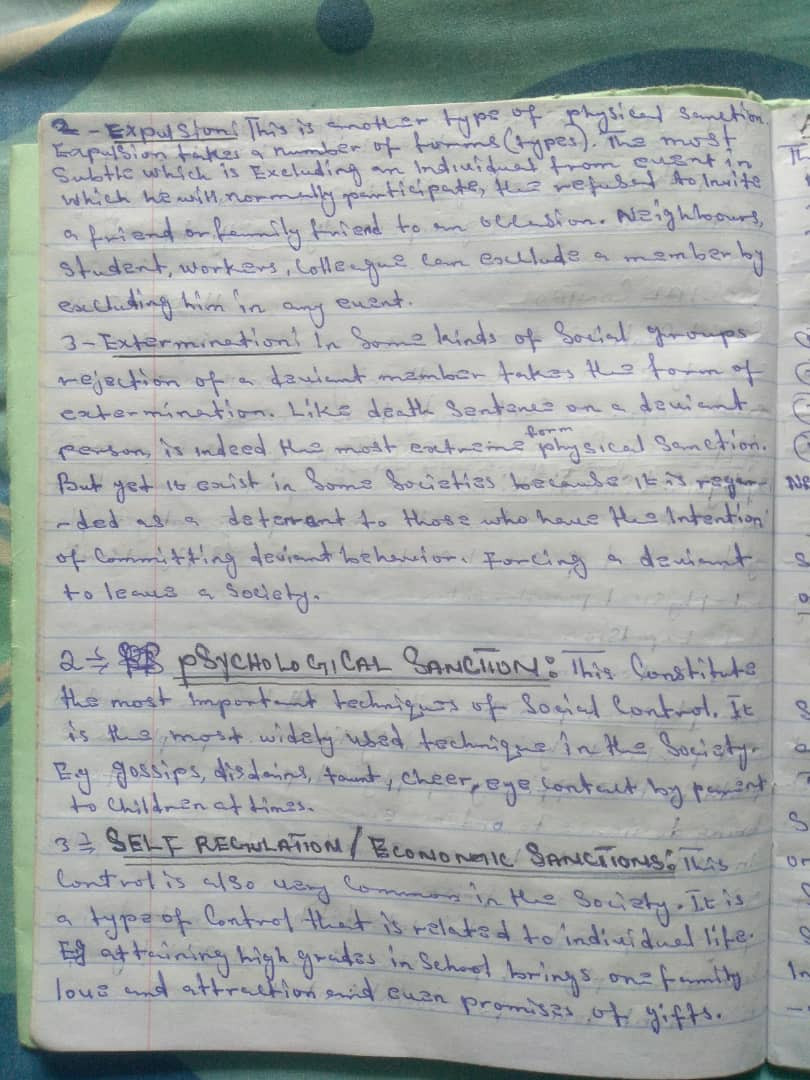 2 - Expulsion: This is another type of physical Sanction.
Expulsion takes a number of forms (types). The most
Subtle which is Excluding an Individual from event in
which he will normally participate, the refusal to Invite
a friend or family friend to an occasion. Neighbours,
Student, workers, Colleague can exclude a member by
excluding him in any event.
3 - Extermination: In Some kinds of Social groups
rejection of a deviant member takes the form of
extermination. Like death Sentence on a deviant
person, is indeed the most extreme form physical Sanction.
But yet it exist in Some Societies because it is regar-
-ded as a deterrent to those who have the Intention
of Committing deviant behavior. Forcing a deviant
to leave a Society.
2 - PSYCHOLOGICAL SANCTION: This Constitute
the most important techniques of Social Control. It
is the most widely used technique in the Society.
Eg gossips, disdains, taunt, cheer, eye contact by parent
to Children at times.
3 - SELF REGULATION / ECONOMIC SANCTIONS: This
Control is also very Common in the Society. It is
a type of Control that is related to individual life.
Eg attaining high grades in School brings one family
love and attraction and even promises of gifts.